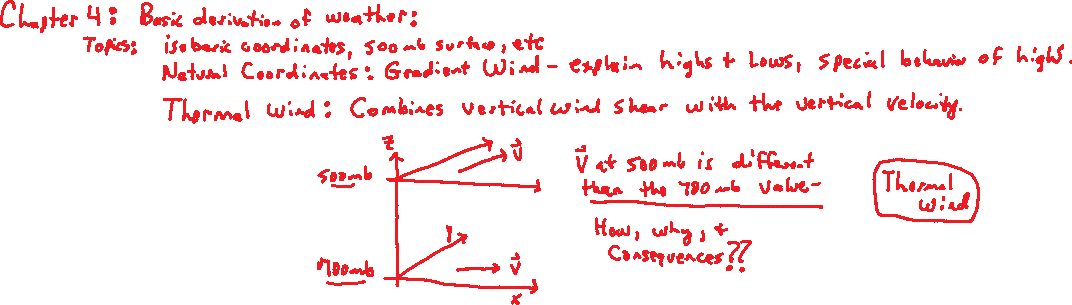 Chapter 4: Basic derivation of weather:
Topics: isobaric coordinates, 500 mb surface, etc
Natural Coordinates: Gradient Wind - explain highs + Lows, special behavior of highs.
Thermal Wind: Combines vertical wind shear with the vertical velocity.
z
500mb
V
V at 500 mb is different
than the 700 mb value-
Thermal
Wind
How, why, +
Consequences??
y
700mb
V
x